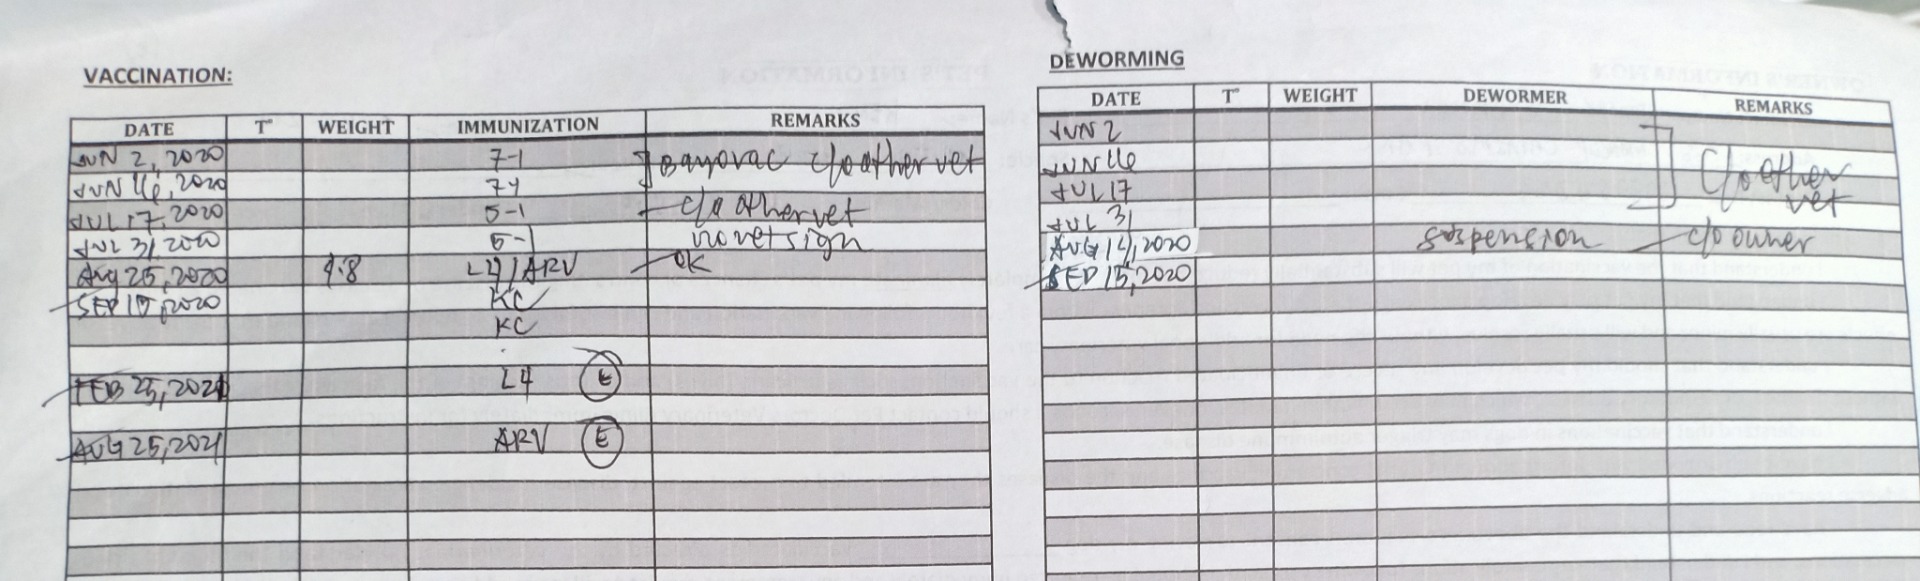 VACCINATION:
DATE T° WEIGHT IMMUNIZATION REMARKS
JUN 2, 2020 7-1 Bayovac c/o other vet
JUN 16, 2020 7-1
JUL 17, 2020 5-1 c/o other vet
JUL 31, 2020 5-1 no vet sign
Aug 25, 2020 4.8 L4/ARV OK
SEP 15, 2020 KC
KC
FEB 25, 2021 L4 E
AUG 25, 2021 ARV E
DEWORMING
DATE T° WEIGHT DEWORMER REMARKS
JUN 2
JUN 16 c/o other
JUL 17 vet
JUL 31
AUG 14, 2020 suspension c/o owner
SEP 15, 2020